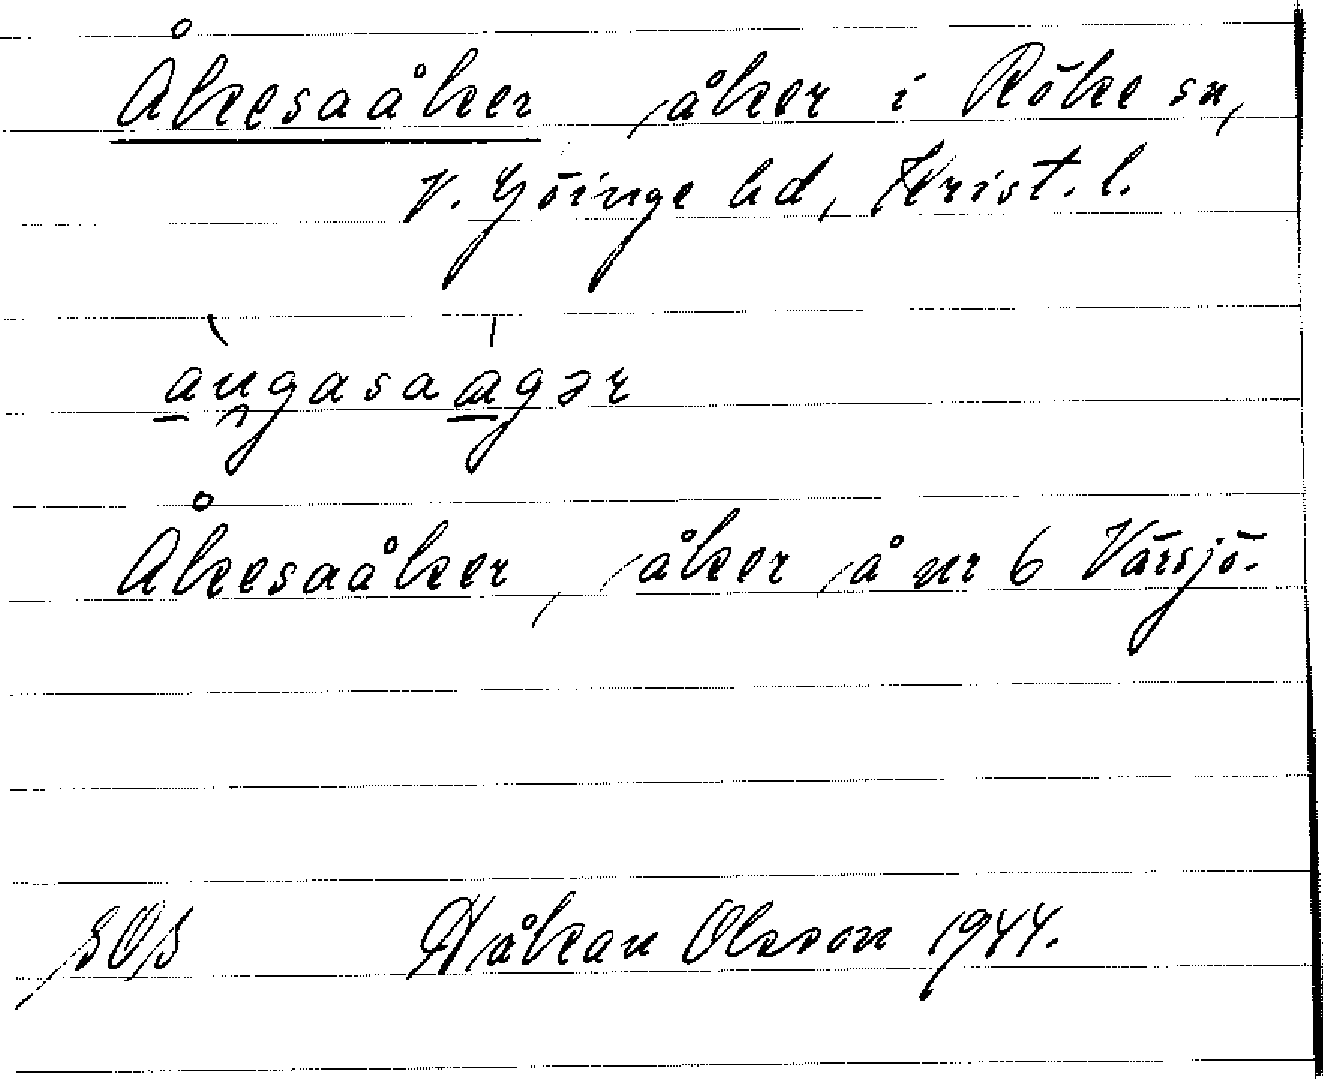 Åkesaåker åker i Röke sn,
V. Göinge hd, Krist. l.
Åkesaåker, åker å nr 6 Värsjö.
SOS Håkan Olsson 1944.